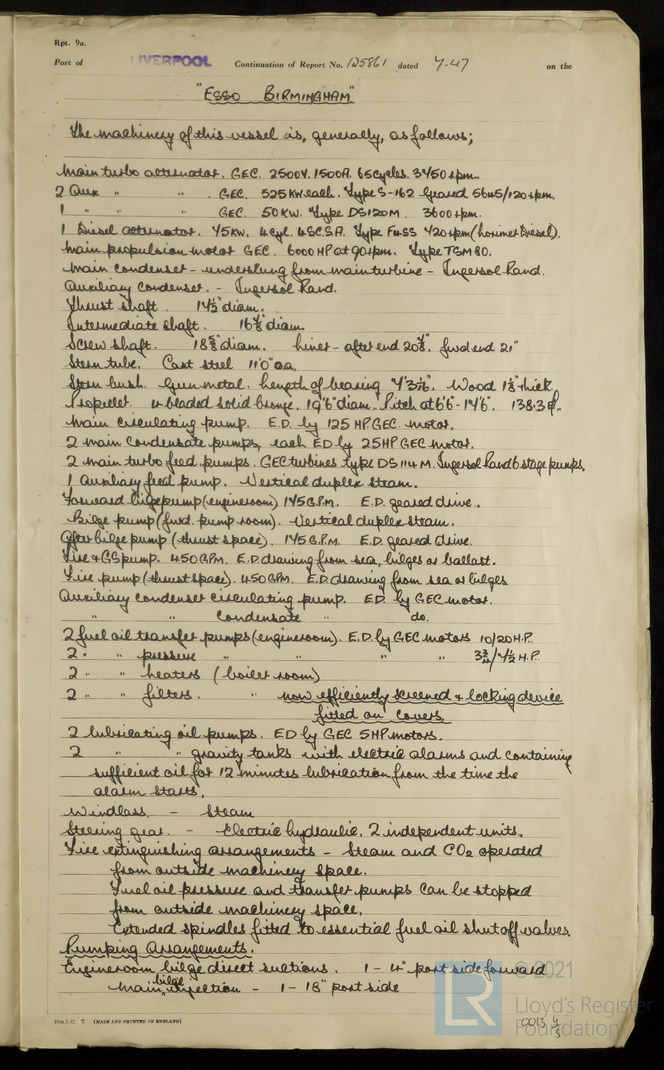 Rpt. 9a.
Port of LIVERPOOL Continuation of Report No. 125861 dated 7-47 on the
"ESSO BIRMINGHAM"
The machinery of this vessel is, generally, as follows;
Main turbo alternator. GEC. 2500V. 1500A. 65cycles. 3750rpm.
2 Aux " " . GEC. 525KW each. Type S-162. Geared 5645/120rpm.
1 " " " GEC. 50KW. Type DS120M. 3600rpm.
1 Diesel alternator. 75KW. 4cyl. 4SCSA. Type F4SS 720rpm (Lorimer Diesel).
Main propulsion motor GEC. 6000HP at 90rpm. Type TSM80.
Main condenser - underslung from main turbine - Ingersol Rand.
Auxiliary condenser. - Ingersol Rand.
Thrust shaft. 14½" diam.
Intermediate shaft. diam.
Screw shaft. diam. Liner - after end fwd end 21"
Stern tube. Cast steel 11'0" oa.
Stern bush. Gun metal. Length of bearing Wood thick.
Propeller 4 bladed solid bronze. 19'6" diam. Pitch at 6'6" - 14'6".
Main circulating pump. E.D. by 125 HP GEC. motor.
2 main condensate pumps, each ED by 25HP GEC motor.
2 main turbo feed pumps. GEC turbines type DS114M. Ingersol Rand 6 stage pumps.
1 Auxiliary feed pump. Vertical duplex steam.
Forward bilge pump (engineroom) 145G.P.M. E.D. geared drive.
Bilge pump (fwd. pump room). Vertical duplex steam.
After bilge pump (thrust space). 145G.P.M. E.D. geared drive.
Fire & GS pump. 450GPM. E.D drawing from sea, bilges or ballast.
Fire pump (thrust space). 450GPM. E.D drawing from sea or bilges
Auxiliary condenser circulating pump. ED. by GEC motor.
" " Condensate " do.
2 fuel oil transfer pumps (engineroom). E.D. by GEC motors 10/20 H.P.
2 " " pressure " " " " H.P.
2 " " heaters (boiler room)
2 " " filters. " now efficiently screened & locking device
fitted on covers.
2 lubricating oil pumps. ED by GEC 5HP motors.
2 " " gravity tanks with electric alarms and containing
sufficient oil for 12 minutes lubrication from the time the
alarm starts.
Windlass. - Steam
Steering gear. - Electric hydraulic. 2 independent units.
Fire extinguishing arrangements - Steam and CO₂ operated
from outside machinery space.
Fuel oil pressure and transfer pumps can be stopped
from outside machinery space.
Extended spindles fitted to essential fuel oil shut off valves.
Pumping Arrangements.
Engineroom bilge direct suctions. 1 - 4" port side forward
Main bilge injection - 1 - 18" port side
(MADE AND PRINTED IN ENGLAND)
© 2021
Lloyd's Register
Foundation
LR